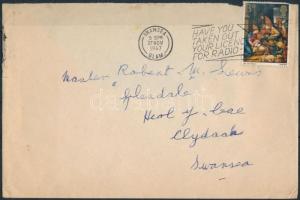 SWANSEA
5 30PM
27 NOV
1967
GLAM
HAVE YOU
TAKEN OUT
YOUR LICENCE
FOR RADIO
Master Robert M. Lewis
"Glendale"
Heol y
Clydach
Swansea